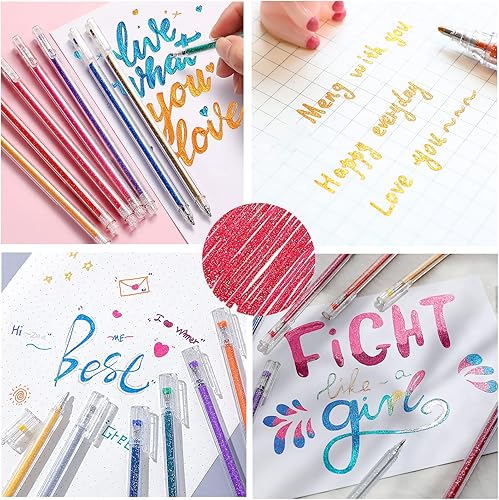 live
what
you
love
Meng with you
Happy everyday
Love you
Hi
Best
ME
"I ♥ Winter"
FiGHT
like a
girl